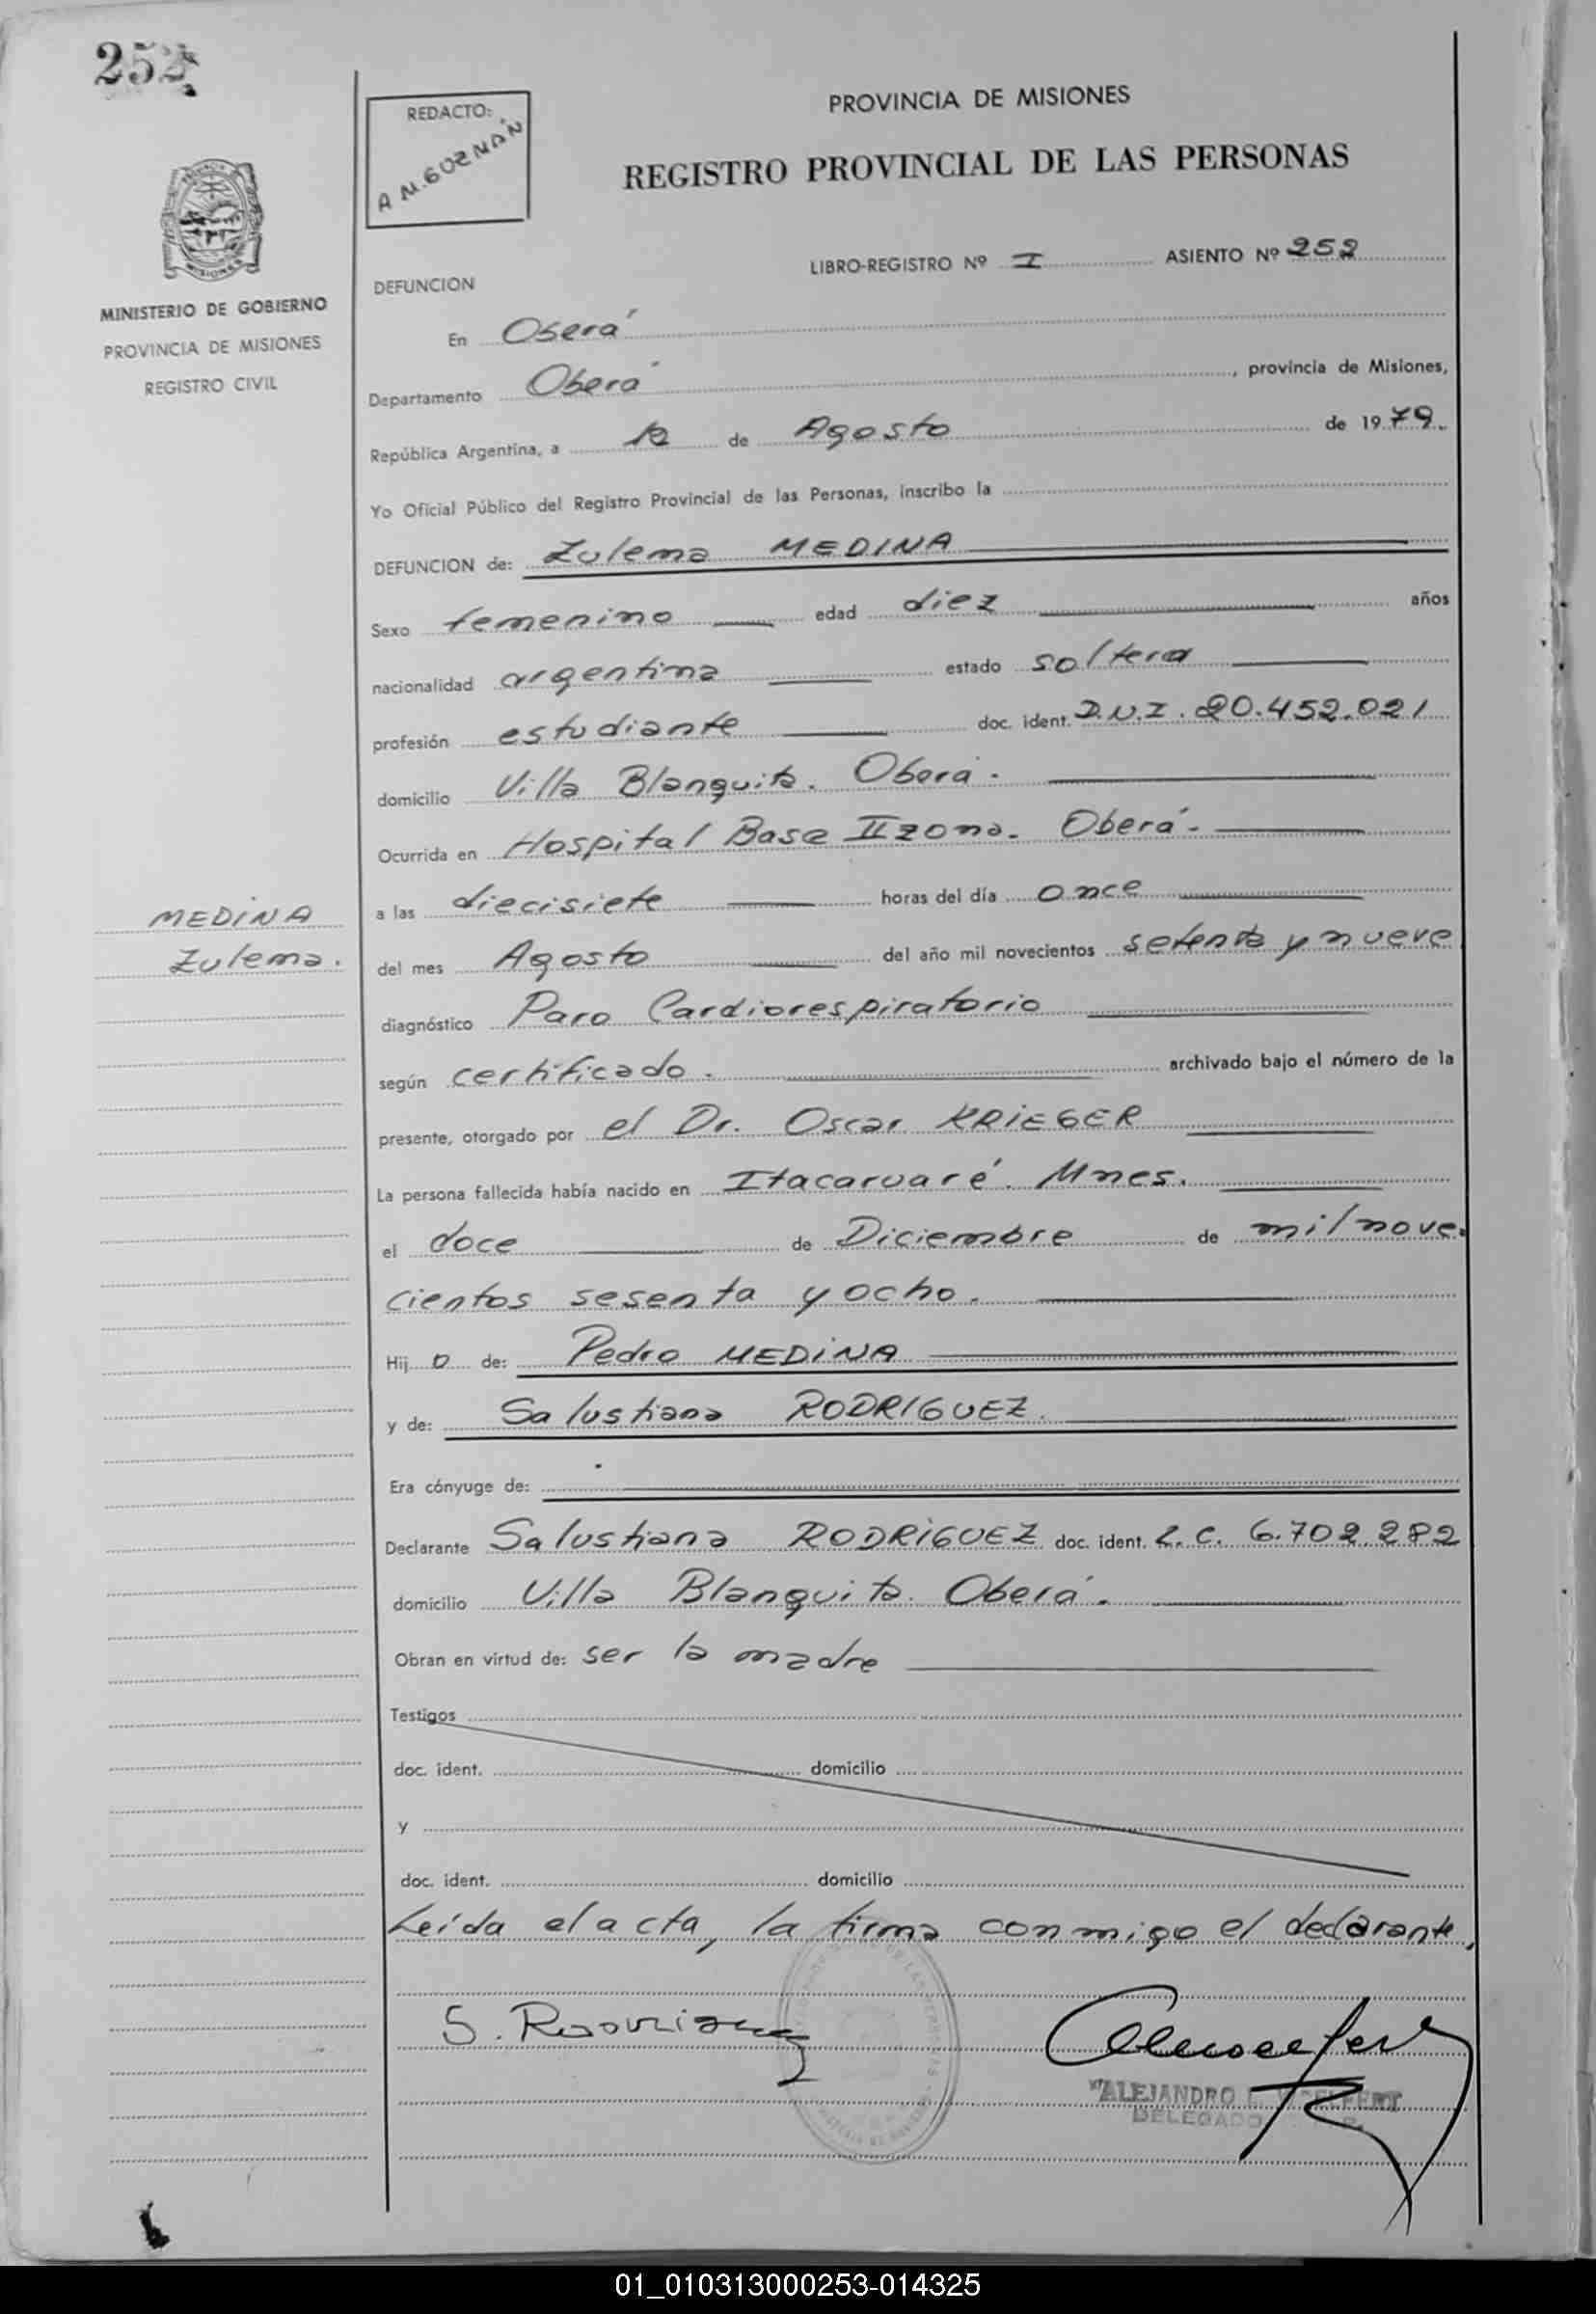 252
REDACTO:
PROVINCIA DE MISIONES
REGISTRO PROVINCIAL DE LAS PERSONAS
MISIONES
MINISTERIO DE GOBIERNO
PROVINCIA DE MISIONES
REGISTRO CIVIL
LIBRO-REGISTRO Nº I ASIENTO Nº 252
DEFUNCION
En Oberá
Departamento Oberá, provincia de Misiones,
República Argentina, a 12 de Agosto de 1979.
Yo Oficial Público del Registro Provincial de las Personas, inscribo la
DEFUNCION de: Zulema MEDINA
Sexo femenino edad diez años
nacionalidad argentina estado soltera
profesión estudiante doc. ident. D.N.I. 20.452.021
domicilio Villa Blanquita. Oberá.
Ocurrida en Hospital Base II zona. Oberá.
a las diecisiete horas del día once
MEDINA
Zulema.
del mes Agosto del año mil novecientos setenta y nueve
diagnóstico Paro Cardiorespiratorio
según certificado. archivado bajo el número de la
presente, otorgado por el Dr. Oscar KRIEGER
La persona fallecida había nacido en Itacaruaré. Mnes.
el doce de Diciembre de mil nove-
cientos sesenta y ocho.
Hij a de: Pedro MEDINA
y de: Salustiana RODRIGUEZ.
Era cónyuge de:
Declarante Salustiana RODRIGUEZ doc. ident. L.C. 6.702.282
domicilio Villa Blanquita. Oberá.
Obran en virtud de: ser la madre
Testigos
doc. ident. domicilio
y
doc. ident. domicilio
Leída el acta, la firma conmigo el declarante,
S. Rodriguez
ALEJANDRO
DELEGADO
01_010313000253-014325